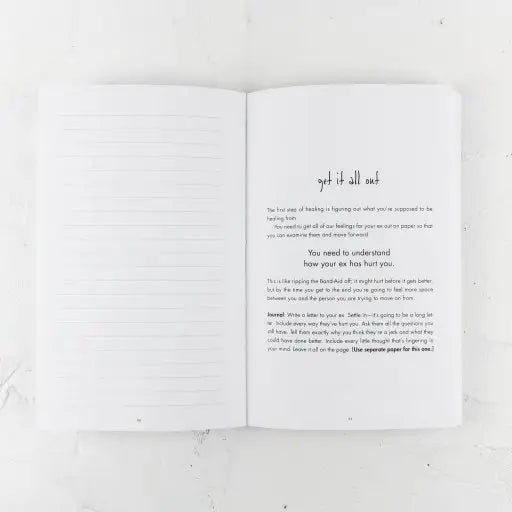 get it all out
The first step of healing is figuring out what you're supposed to be
healing from.
You need to get all of our feelings for your ex out on paper so that
you can examine them and move forward.
You need to understand
how your ex has hurt you.
This is like ripping the Band-Aid off; it might hurt before it gets better,
but by the time you get to the end you're going to feel more space
between you and the person you are trying to move on from.
Journal: Write a letter to your ex. Settle in—it's going to be a long let-
ter. Include every way they've hurt you. Ask them all the questions you
still have. Tell them exactly why you think they're a jerk and what they
could have done better. Include every little thought that's lingering in
your mind. Leave it all on the page. [Use separate paper for this one.]